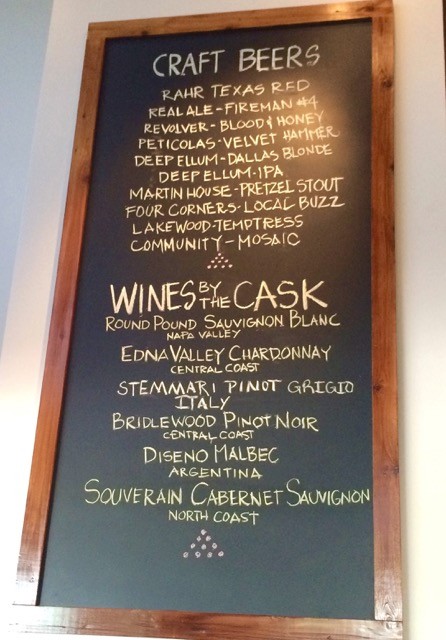 CRAFT BEERS
RAHR TEXAS RED
REAL ALE - FIREMAN #4
REVOLVER - BLOOD & HONEY
PETICOLAS - VELVET HAMMER
DEEP ELLUM - DALLAS BLONDE
DEEP ELLUM - IPA
MARTIN HOUSE - PRETZEL STOUT
FOUR CORNERS - LOCAL BUZZ
LAKEWOOD - TEMPTRESS
COMMUNITY - MOSAIC
WINES BY THE CASK
ROUND POUND SAUVIGNON BLANC
NAPA VALLEY
EDNA VALLEY CHARDONNAY
CENTRAL COAST
STEMMARI PINOT GRIGIO
ITALY
BRIDLEWOOD PINOT NOIR
CENTRAL COAST
DISENO MALBEC
ARGENTINA
SOUVERAIN CABERNET SAUVIGNON
NORTH COAST